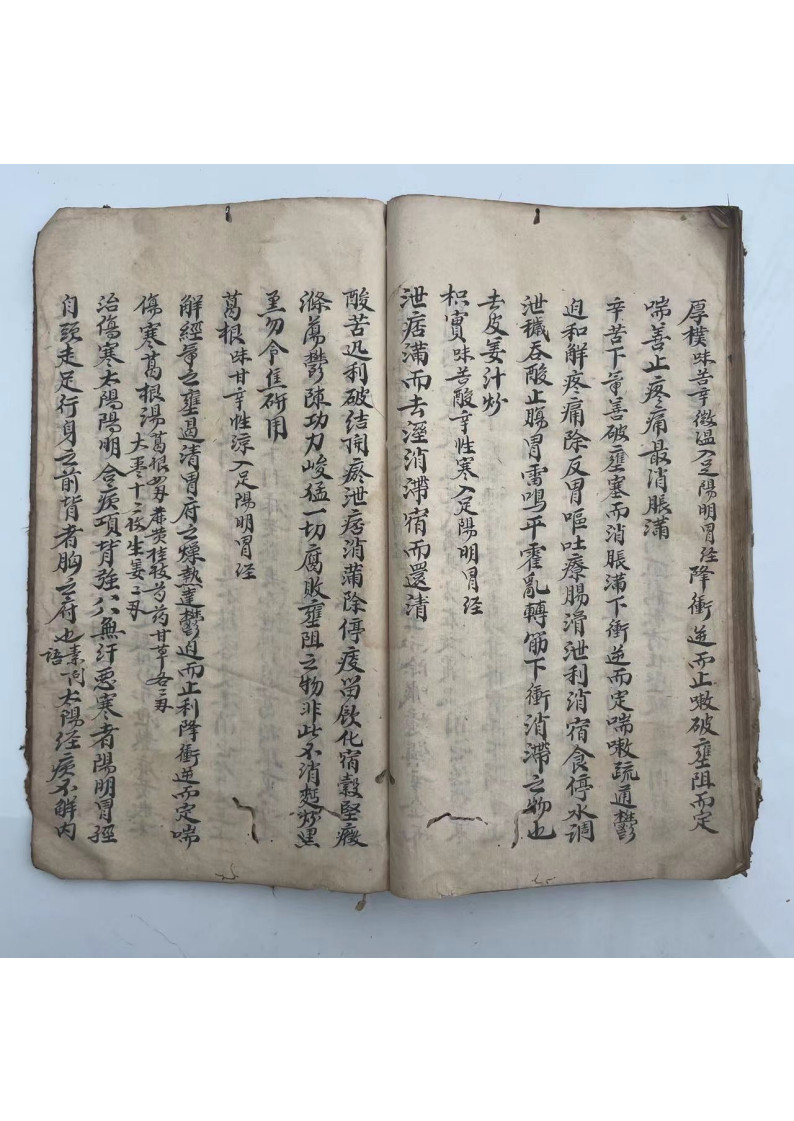 厚樸味苦辛微溫入足陽明胃经降衝逆而止嗽破壅阻而定
喘善止疼痛最消脹滿
辛苦下氣善破壅塞而消脹滿下衝逆而定喘嗽疏通鬱
迫和解疼痛除反胃嘔吐療腸滑泄利消宿食停水調
泄穢吞酸止腸胃雷鳴平霍亂轉筋下衝消滯之物也
去皮姜汁炒
枳實味苦酸辛性寒入足陽明胃经
泄痞滿而去溼消滯宿而還清
酸苦迅利破结開瘀泄痞消滿除停痰留飲化宿穀堅癥
滌蕩鬱陳功力峻猛一切腐敗壅阻之物非此不消麩炒黑
黑勿令焦研用
葛根味甘辛性涼入足陽明胃经
解經氣之壅遏清胃府之燥熱達鬱迫而止利降衝逆而定喘
傷寒葛根湯葛根四另麻黄桂枝芍药甘草各二另
大枣十二枚生姜二另
治傷寒太陽陽明合病項背強几几無汗惡寒者陽明胃經
自頭走足行身之前背者胸之府也素问
語太陽经病不解内